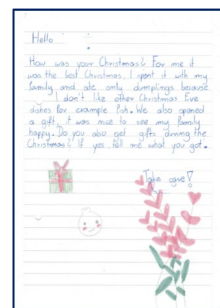 Hello!
How was your Christmas? For me it
was the best Christmas. I spent it with my
family and ate only dumplings because
I don't like other Christmas Eve
dishes for example fish. We also opened
a gift, it was nice to see my family
happy. Do you also get gifts during the
Christmas? If yes tell me what you got.
Take care!